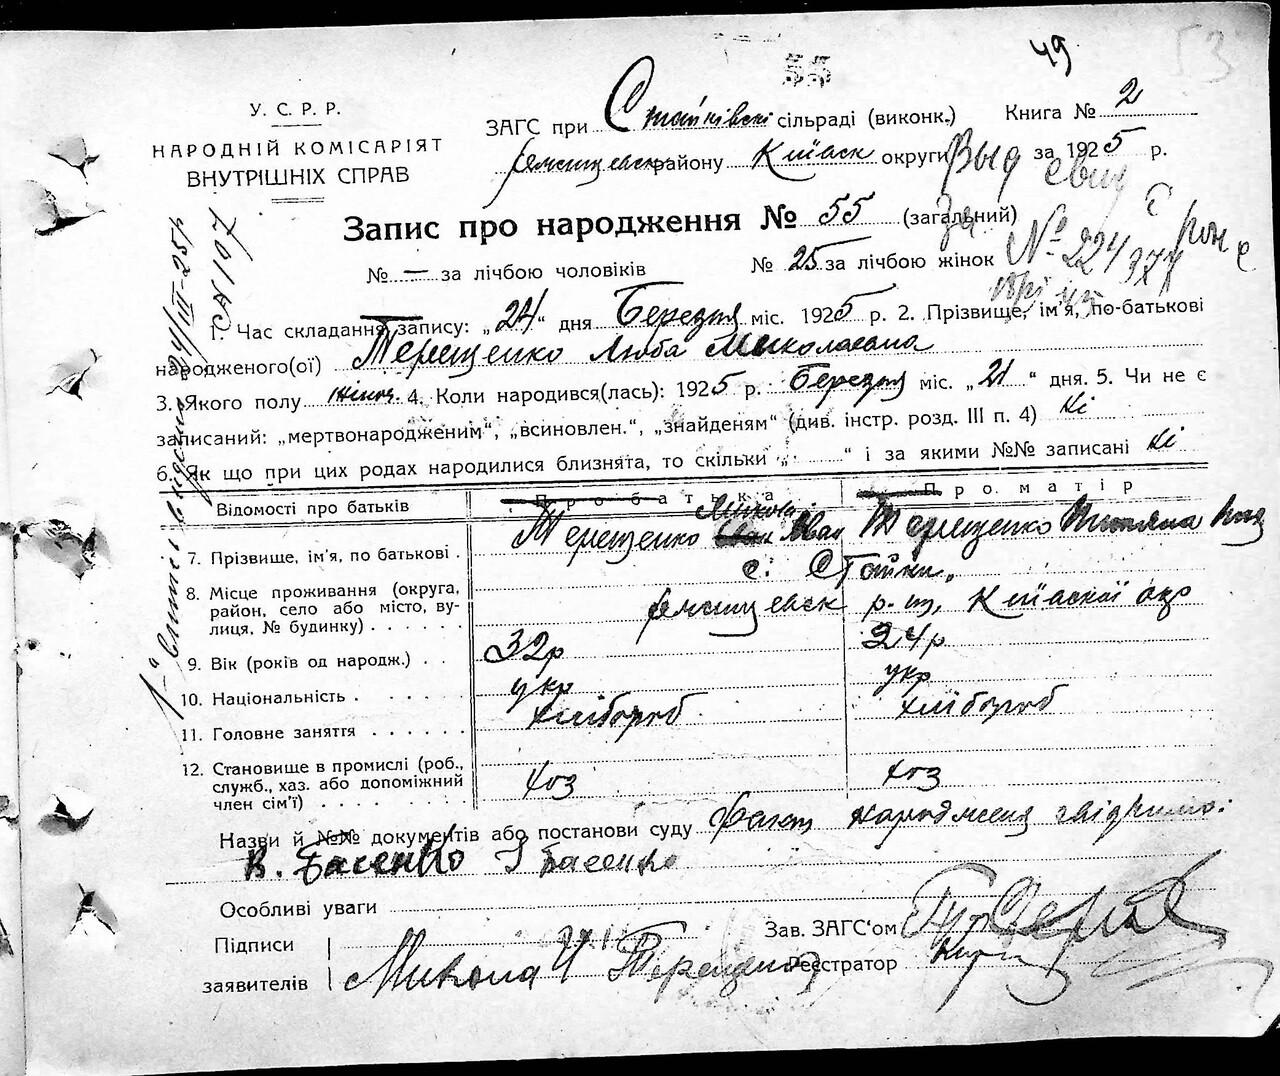 49
53
У. С. Р. Р.
НАРОДНІЙ КОМІСАРІЯТ
ВНУТРІШНІХ СПРАВ
ЗАГС при Стайківскі сільраді (виконк.) Книга № 2
району Київськ округи за 1925 р.
Выд
Запис про народження № 55 (загальний)
за № 224377
№ — за лічбою чоловіків № 25 за лічбою жінок
1. Час складання запису: „24“ дня Березня міс. 1925 р. 2. Прізвище, ім'я, по-батькові
народженого(ої) Терещенко Люба Миколаевна
3. Якого полу жіноч. 4. Коли народився(лась): 1925 р. Березня міс. „21“ дня. 5. Чи не є
записаний: „мертвонародженим“, „всиновлен.“, „знайденям“ (див. інстр. розд. III п. 4) Ні
6. Як що при цих родах народилися близнята, то скільки „ “ і за якими №№ записані Ні
Відомості про батьків Про батька Про матір
Микола
7. Прізвище, ім'я, по батькові . Терещенко Іван Терещенко
с. Стайки
8. Місце проживання (округа,
район, село або місто, ву-
лиця, № будинку) . . . . . р-ну, Київської
9. Вік (років од народж.) . . 32р 24р
10. Національність . . . . . . укр укр
11. Головне заняття . . . . . . хлібороб хлібороб
12. Становище в промислі (роб.,
служб., хаз. або допоміжний
член сім'ї) . . . . . . . . . . хоз хоз
Назви й №№ документів або постанови суду факт народження
В. Басенко І Басенко
Особливі уваги
Підписи
заявителів Микола И Терещенко
Зав. ЗАГС'ом
Реєстратор